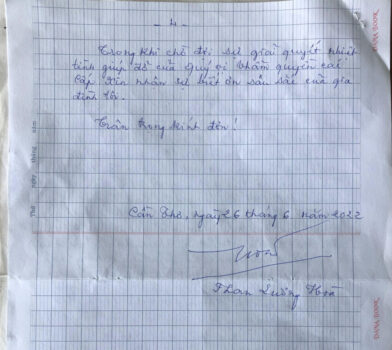 - 4 -
Trong khi chờ đợi sự giải quyết nhiệt
tình giúp đỡ của Quý vị thẩm quyền các
Cấp Xin nhận sự biết ơn sâu sắc của gia
đình tôi.
Trân trọng kính đơn!
Cần Thơ, ngày 26 tháng 6 năm 2022
Hoà
Phan Lương Hoà
Thứ ngày tháng năm
DIANA BOOK
DIANA BOOK